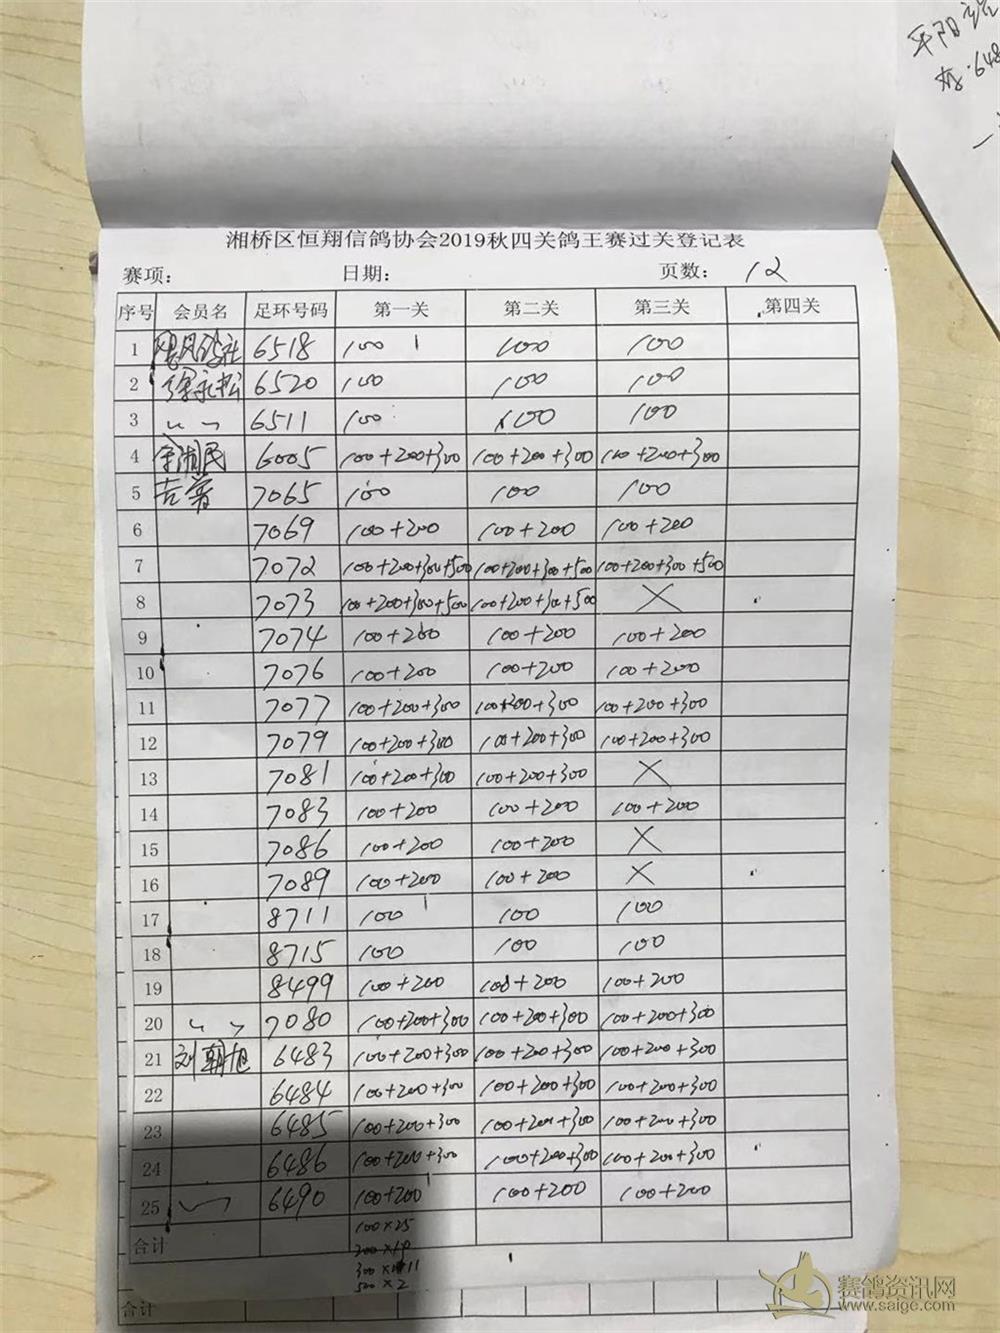 平阳
648
湘桥区恒翔信鸽协会2019秋四关鸽王赛过关登记表
赛项: 日期: 页数: 12
序号 会员名 足环号码 第一关 第二关 第三关 第四关
1 6518 100 100 100
2 徐永松 6520 100 100 100
3 〃 6511 100 100 100
4 民 6005 100+200+300 100+200+300 100+200+300
5 7065 100 100 100
6 7069 100+200 100+200 100+200
7 7072 100+200+300+500 100+200+300+500 100+200+300+500
8 7073 100+200+300+500 100+200+300+500 ×
9 7074 100+200 100+200 100+200
10 7076 100+200 100+200 100+200
11 7077 100+200+300 100+200+300 100+200+300
12 7079 100+200+300 100+200+300 100+200+300
13 7081 100+200+300 100+200+300 ×
14 7083 100+200 100+200 100+200
15 7086 100+200 100+200 ×
16 7089 100+200 100+200 ×
17 8711 100 100 100
18 8715 100 100 100
19 8499 100+200 100+200 100+200
20 〃 7080 100+200+300 100+200+300 100+200+300
21 刘朝旭 6483 100+200+300 100+200+300 100+200+300
22 6484 100+200+300 100+200+300 100+200+300
23 6485 100+200+300 100+200+300 100+200+300
24 6486 100+200+300 100+200+300 100+200+300
25 〃 6490 100+200 100+200 100+200
合计 100×25
200×19
300×11
500×2
合计
赛鸽资讯网
www.saige.com